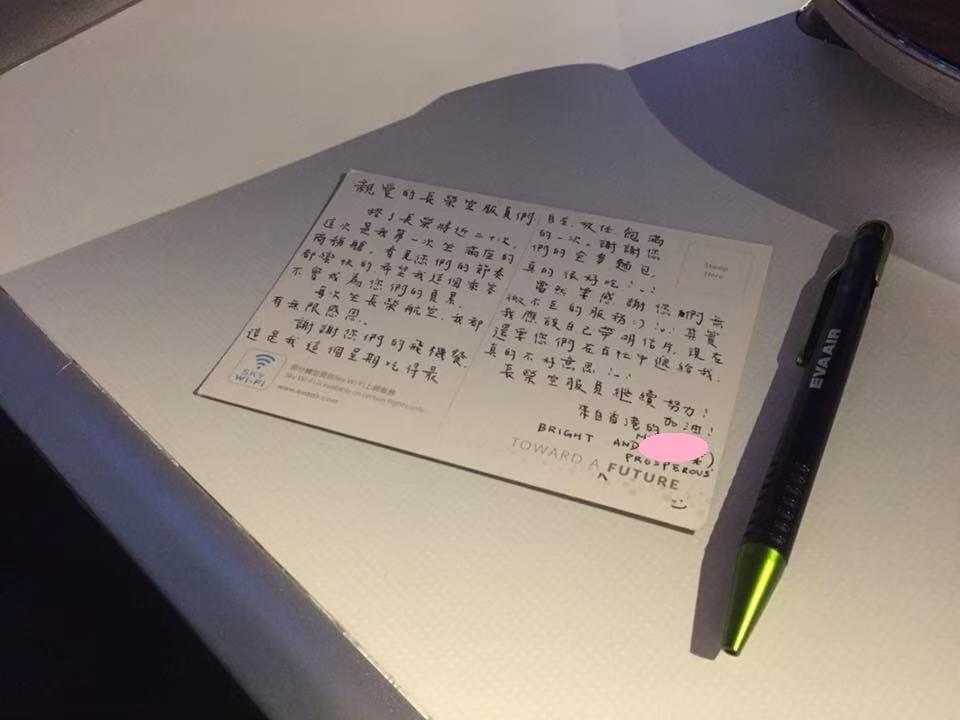 親愛的長榮空服員們
搭了長榮將近二十次,
這次是我第一次坐滿座的
商務艙,看見您們的節奏
都蠻快的,希望我這個乘客
不會成為您們的負累。
每次坐長榮航空,我都
有無限感恩。
謝謝您們的飛機餐,
這是我這個星期吃得最
SKY
WI-FI
部分機型提供Sky Wi-Fi上網服務
Sky Wi-Fi is available on certain flights only.
www.evaair.com
自在放任飽滿
的一次。謝謝您
們的全麥麵包,
真的很好吃!
當然要感謝您們無
微不至的服務:) 其實
我應該自己帶明信片,現在
還要您們在百忙中遞給我,
真的不好意思!
長榮空服員繼續努力!
加油!
來自香港的
BRIGHT AND
PROSPEROUS
TOWARD A FUTURE
Stamp
Here
EVA AIR